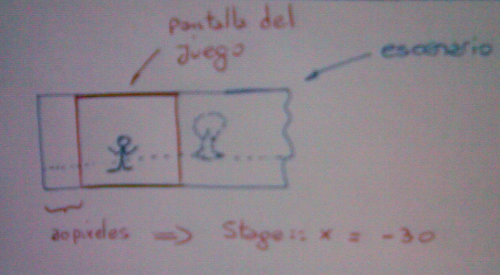 pantalla del
juego
escenario
30pixeles => Stage:: x = -30